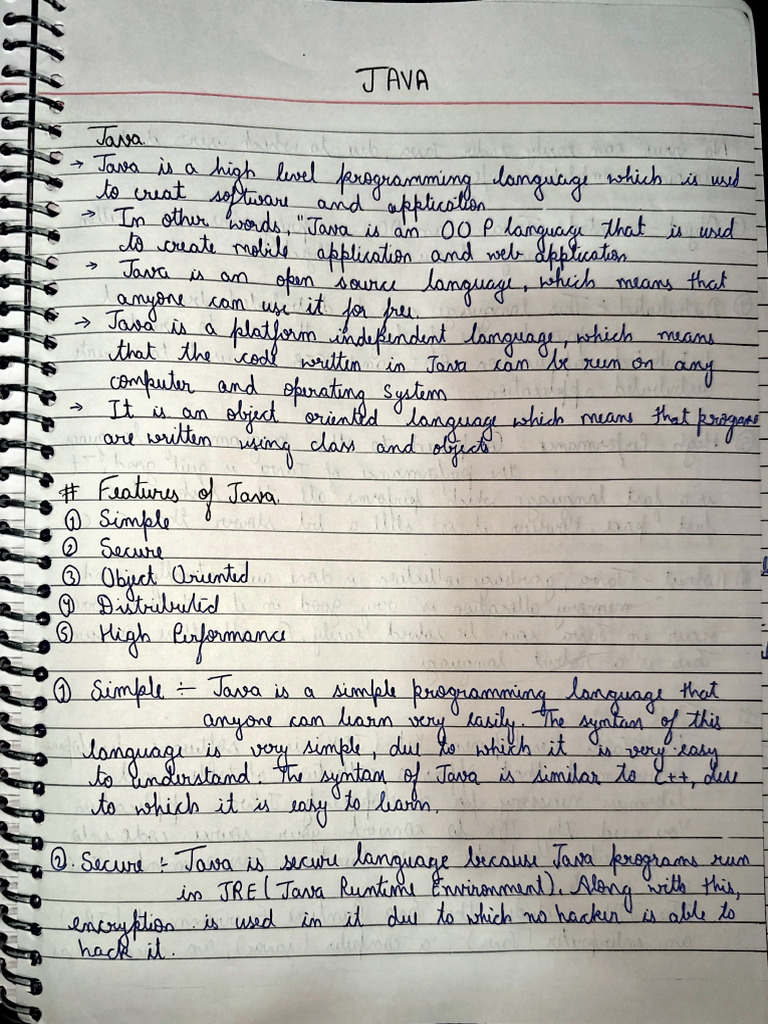 JAVA
Java
→ Java is a high level programming language which is used
to creat software and application
→ In other words, "Java is an OOP language that is used
to create mobile application and web application
→ Java is an open source language, which means that
anyone can use it for free.
→ Java is a platform independent language, which means
that the code written in Java can be run on any
computer and operating system
→ It is an object oriented language which means that programs
are written using class and objects
# Features of Java.
① Simple
② Secure
③ Object Oriented
④ Distributed
⑤ High Performance
① Simple :- Java is a simple programming language that
anyone can learn very easily. The syntax of this
language is very simple, due to which it is very easy
to understand. The syntax of Java is similar to C++, due
to which it is easy to learn.
②. Secure :- Java is secure language because Java programs run
in JRE (Java Runtime Environment). Along with this,
encryption is used in it due to which no hacker is able to
hack it.